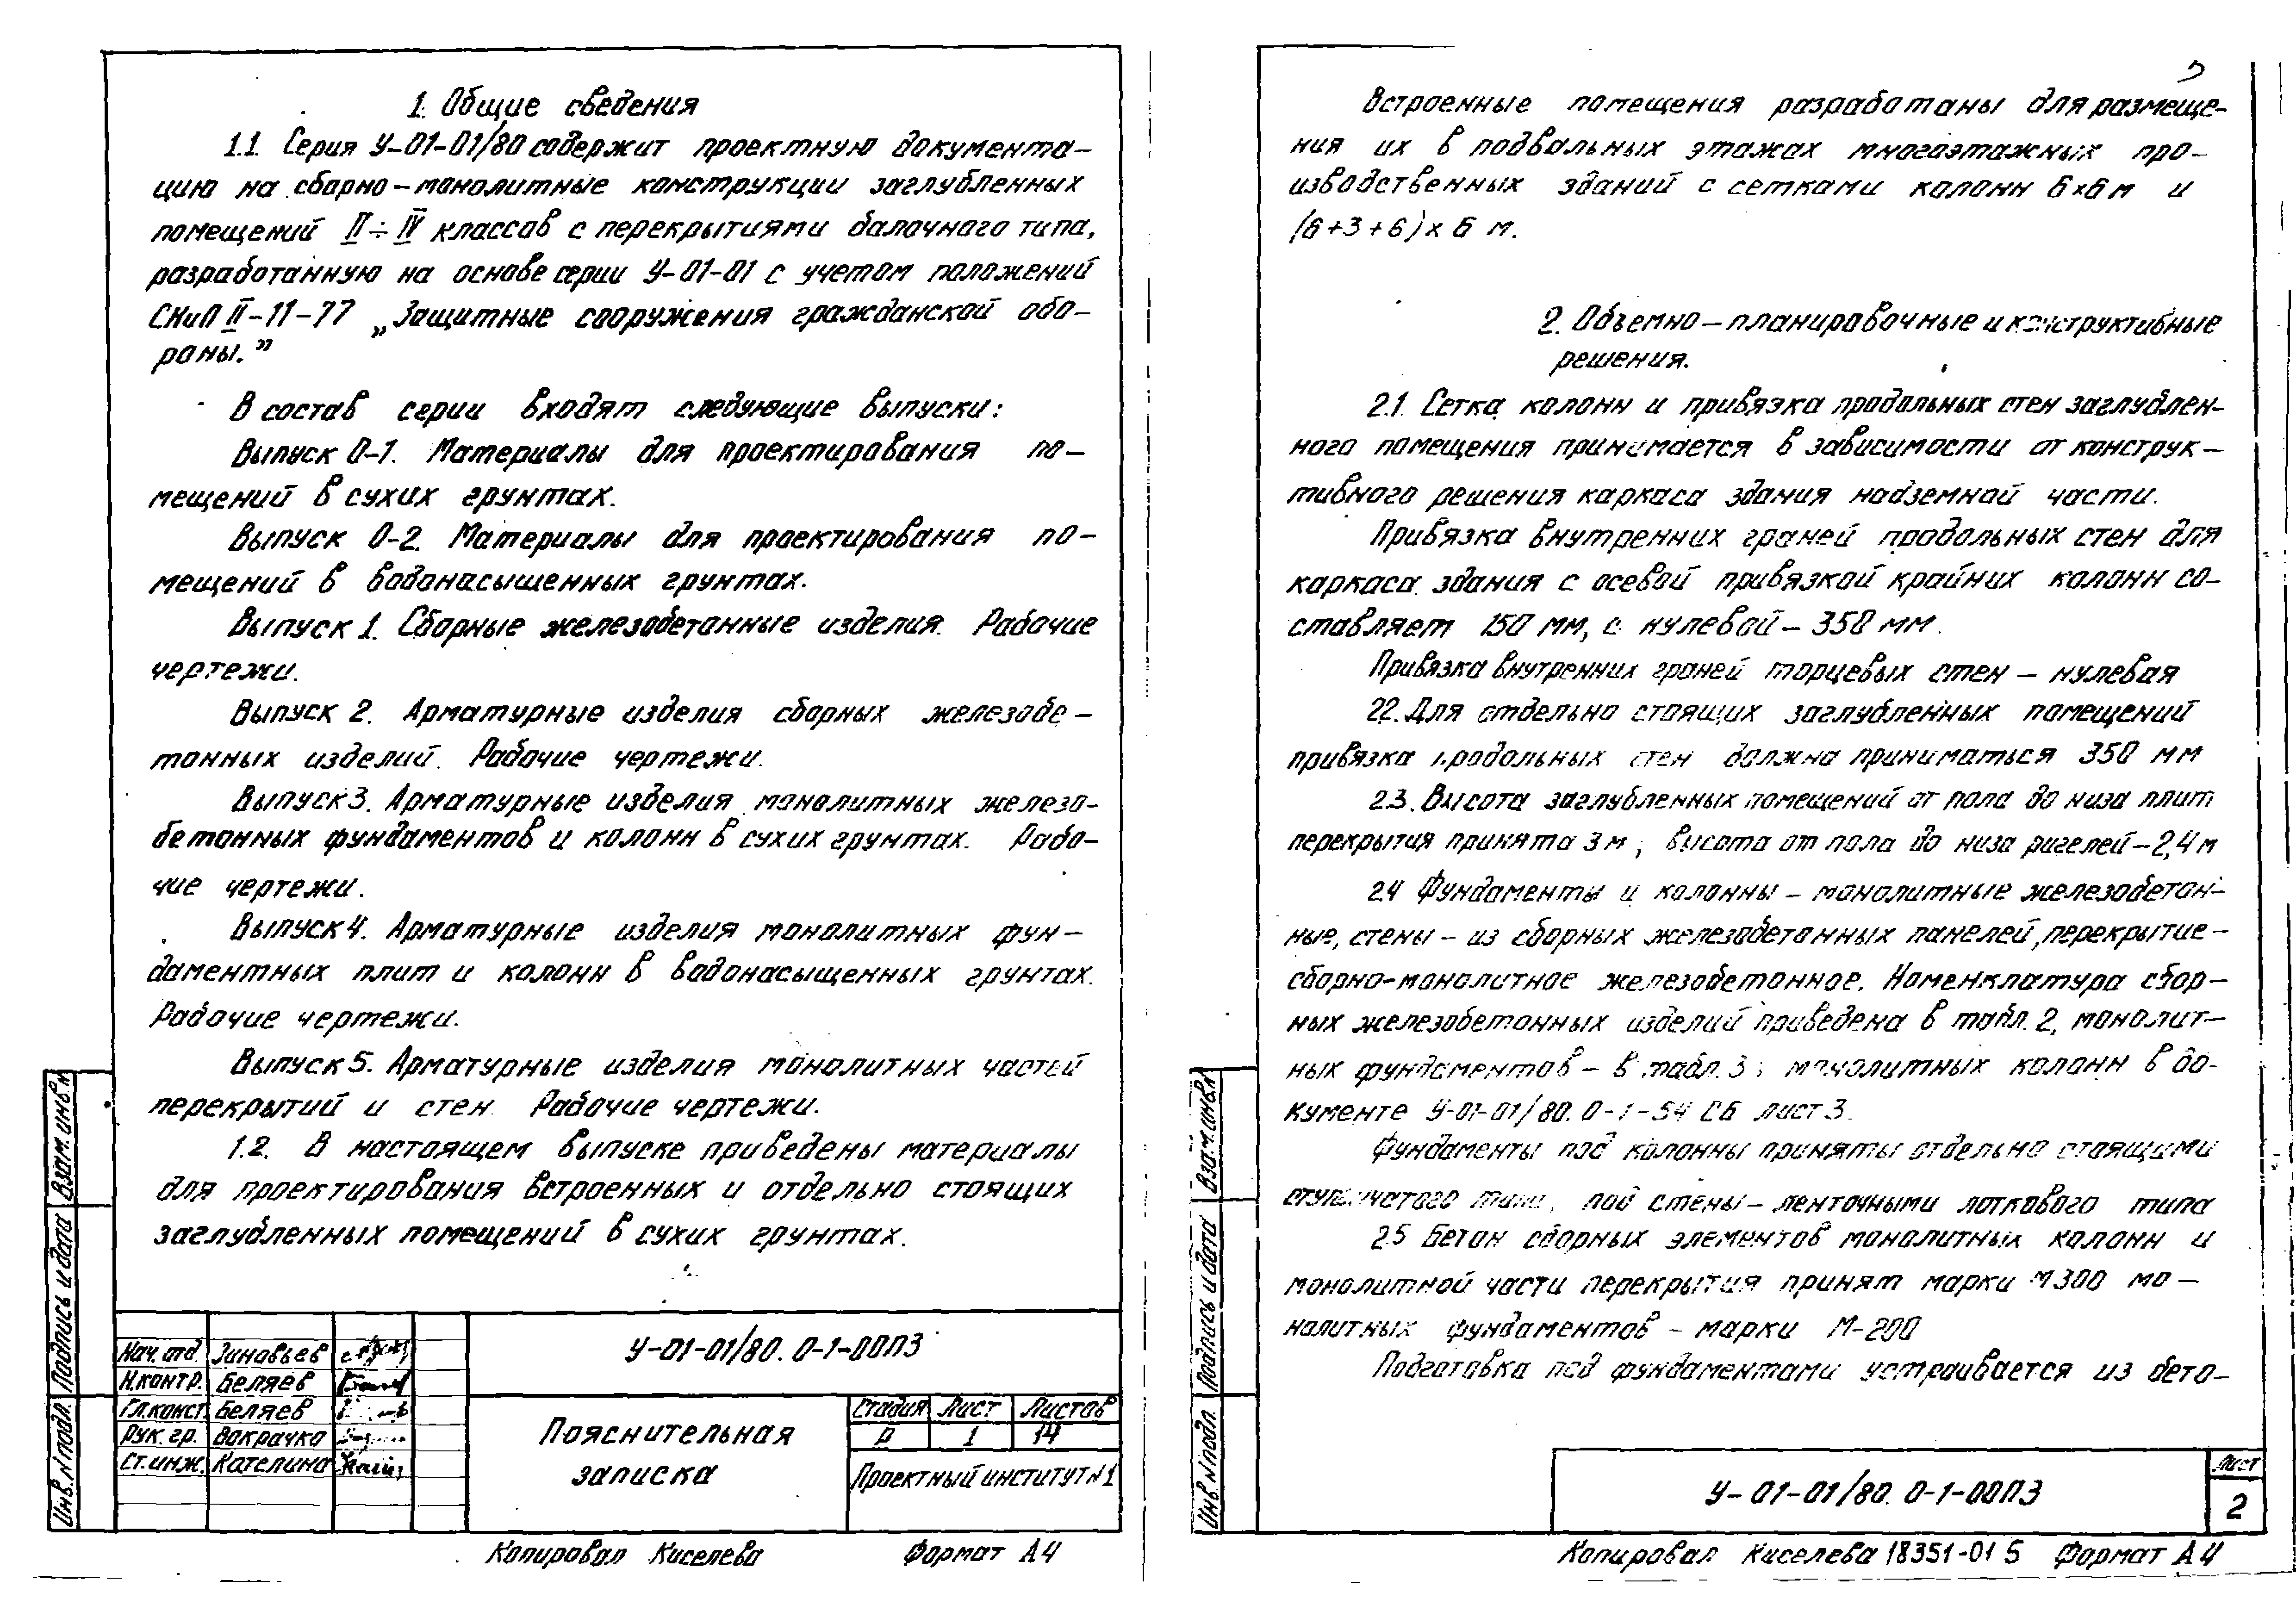 1. Общие сведения
1.1. Серия У-01-01/80 содержит проектную документа-
цию на сборно-монолитные конструкции заглубленных
помещений II÷IV классов с перекрытиями балочного типа,
разработанную на основе серии У-01-01 с учетом положений
СНиП II-11-77 „Защитные сооружения гражданской обо-
роны.”
В состав серии входят следующие выпуски:
Выпуск 0-1. Материалы для проектирования по-
мещений в сухих грунтах.
Выпуск 0-2. Материалы для проектирования по-
мещений в водонасышенных грунтах.
Выпуск 1. Сборные железобетонные изделия. Рабочие
чертежи.
Выпуск 2. Арматурные изделия сборных железобе-
тонных изделий. Рабочие чертежи.
Выпуск 3. Арматурные изделия монолитных железо-
бетонных фундаментов и колонн в сухих грунтах. Рабо-
чие чертежи.
Выпуск 4. Арматурные изделия монолитных фун-
даментных плит и колонн в водонасыщенных грунтах.
Рабочие чертежи.
Выпуск 5. Арматурные изделия монолитных частей
перекрытий и стен. Рабочие чертежи.
1.2. В настоящем выпуске приведены материалы
для проектирования встроенных и отдельно стоящих
заглубленных помещений в сухих грунтах.
Нач. отд. Зиновьев
Н.контр. Беляев
Гл.конст. Беляев
Рук. гр. Вакрачко
Ст.инж. Кателина
У-01-01/80. 0-1-00ПЗ
Пояснительная
записка
Стадия Лист Листов
Р 1 14
Проектный институт №1
Инв. № подл. Подпись и дата Взам. инв. №
Копировал Киселева Формат А4
Встроенные помещения разработаны для размеще-
ния их в подвальных этажах многоэтажных про-
изводственных зданий с сетками колонн 6×6 м и
(6+3+6)×6 м.
2. Объемно-планировочные и конструктивные
решения.
2.1. Сетка колонн и привязка продольных стен заглублен-
ного помещения принимается в зависимости от конструк-
тивного решения каркаса здания надземной части.
Привязка внутренних граней продольных стен для
каркаса здания с осевой привязкой крайних колонн со-
ставляет 150 мм, с нулевой - 350 мм.
Привязка внутренних граней торцевых стен - нулевая
2.2. Для отдельно стоящих заглубленных помещений
привязка продольных стен должна приниматься 350 мм
2.3. Высота заглубленных помещений от пола до низа плит
перекрытия принята 3 м, высота от пола до низа ригелей - 2,4 м
2.4 Фундаменты и колонны - монолитные железобетон-
ные, стены - из сборных железобетонных панелей, перекрытие -
сборно-монолитное железобетонное. Номенклатура сбор-
ных железобетонных изделий приведена в табл. 2, монолит-
ных фундаментов - в табл. 3; монолитных колонн в до-
кументе У-01-01/80. 0-1-54 СБ лист 3.
Фундаменты под колонны приняты отдельно стоящими
ступенчатого типа, под стены - ленточными лоткового типа
2.5 Бетон сборных элементов монолитных колонн и
монолитной части перекрытия принят марки М300 мо-
нолитных фундаментов - марки М-200
Подготовка под фундаментами устраивается из бето-
Инв. № подл. Подпись и дата Взам. инв. №
У-01-01/80. 0-1-00ПЗ
Лист
2
Копировал Киселева 18351-01 5 Формат А4